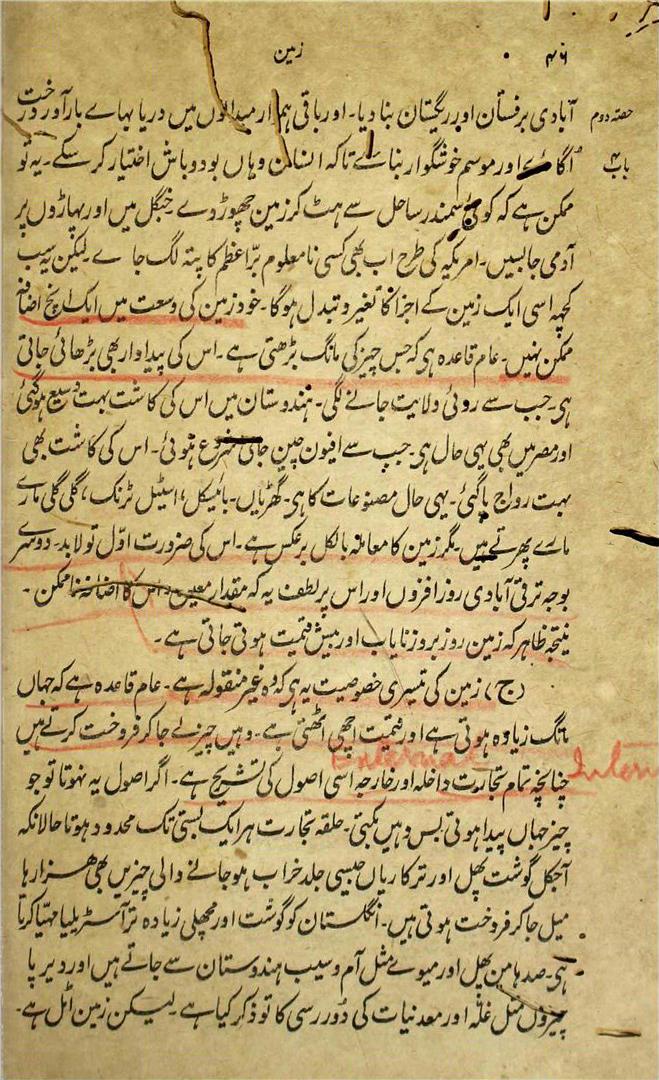 ۴۶
زمین
حصّہ دوم
باب ۴
آبادی برفستان اور ریگستان بنا دیا۔ اور باقی ہموار میدانوں میں دریا بہاے بارآور درخت
اُگاے اور موسم خوشگوار بناے تاکہ انسان وہاں بودوباش اختیار کر سکے۔ یہ تو
ممکن ہے کہ کوئی سمندر ساحل سے ہٹ کر زمین چھوڑ دے۔ جنگل میں اور پہاڑوں پر
آدمی جا بسیں۔ امریکہ کی طرح اب بھی کسی نامعلوم برّاعظم کا پتہ لگ جاے۔ لیکن یہ سب
کچھہ اسی ایک زمین کے اجزا کا تغیر و تبدل ہوگا۔ خود زمین کی وسعت میں ایک اپنچ اضافہ
ممکن نہیں۔ عام قاعدہ ہی کہ جس چیز کی مانگ بڑھتی ہے۔ اس کی پیداوار بھی بڑھائی جاتی
ہی۔ جب سے روئی ولایت جانے لگی۔ ہندوستان میں اس کی کاشت بہت وسیع ہوگئی
اور مصر میں بھی یہی حال ہی۔ جب سے افیون چین جانی شروع ہوئی۔ اس کی کاشت بھی
بہت رواج پا گئی۔ یہی حال مصنوعات کا ہی۔ گھڑیاں۔ بائیسکل، اسٹیل ٹرنک، گلی گلی مارے
مارے پھرتے ہیں۔ مگر زمین کا معاملہ بالکل برعکس ہے۔ اس کی ضرورت اوّل تو لابد۔ دوسرے
بوجہ ترقی آبادی روز افزوں اور اس پر لطف یہ کہ مقدار معین۔ اس کا اضافہ ناممکن۔
نتیجہ ظاہر کہ زمین روز بروز نایاب اور بیش قیمت ہوتی جاتی ہے۔
(ج) زمین کی تیسری خصوصیت یہ ہی کہ وہ غیر منقولہ ہے۔ عام قاعدہ ہے کہ جہاں
مانگ زیادہ ہوتی ہے اور قیمت اچھی اٹھتی ہے۔ وہیں چیز لے جا کر فروخت کرتے ہیں
External Intern
چنانچہ تمام تجارت داخلہ اور خارجہ اسی اصول کی تشریح ہے۔ اگر اصول یہ نہوتا تو جو
چیز جہاں پیدا ہوتی بس وہیں بکتی۔ حلقہ تجارت ہر ایک بستی تک محدود ہوتا حالانکہ
آجکل گوشت پھل اور ترکاریاں جیسی جلد خراب ہو جانے والی چیزیں بھی ہزارہا
میل جا کر فروخت ہوتی ہیں۔ انگلستان کو گوشت اور مچھلی زیادہ تر آسٹریلیا مہیّا کرتا
ہی۔ صدہا من پھل اور میوے مثل آم و سیب ہندوستان سے جاتے ہیں اور دیر پا
چیزوں مثل غلّہ اور معدنیات کی دُور رسی کا تو ذکر کیا ہے۔ لیکن زمین اٹل ہے۔